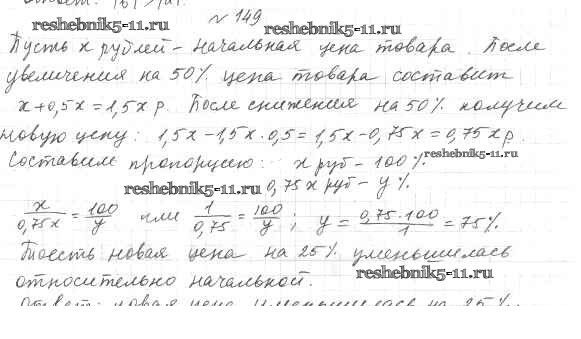 № 149
reshebnik5-11.ru reshebnik5-11.ru
Пусть х рублей - начальная цена товара. После
увеличения на 50% цена товара составит
х+0,5х=1,5х р. После снижения на 50% получим
новую цену: 1,5х-1,5х·0,5=1,5х-0,75х=0,75х р.
Составим пропорцию: х руб - 100%. reshebnik5-11.ru
reshebnik5-11.ru 0,75х руб - у%
х/0,75х = 100/у или 1/0,75 = 100/у; у = 0,75·100/1 = 75%.
Тоесть новая цена на 25% уменьшилась
относительно начальной. reshebnik5-11.ru
Ответ: новая цена уменьшилась на 25%.